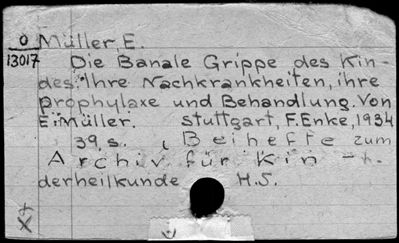 O Müller, E.
13017 Die Banale Grippe des Kin-
des. Ihre Nachkrankheiten, ihre
prophylaxe und Behandlung. Von
E. Müller. Stuttgart, F. Enke, 1934
39, s. (Beihefte zum
Archiv für Kin-
derheilkunde H.5.